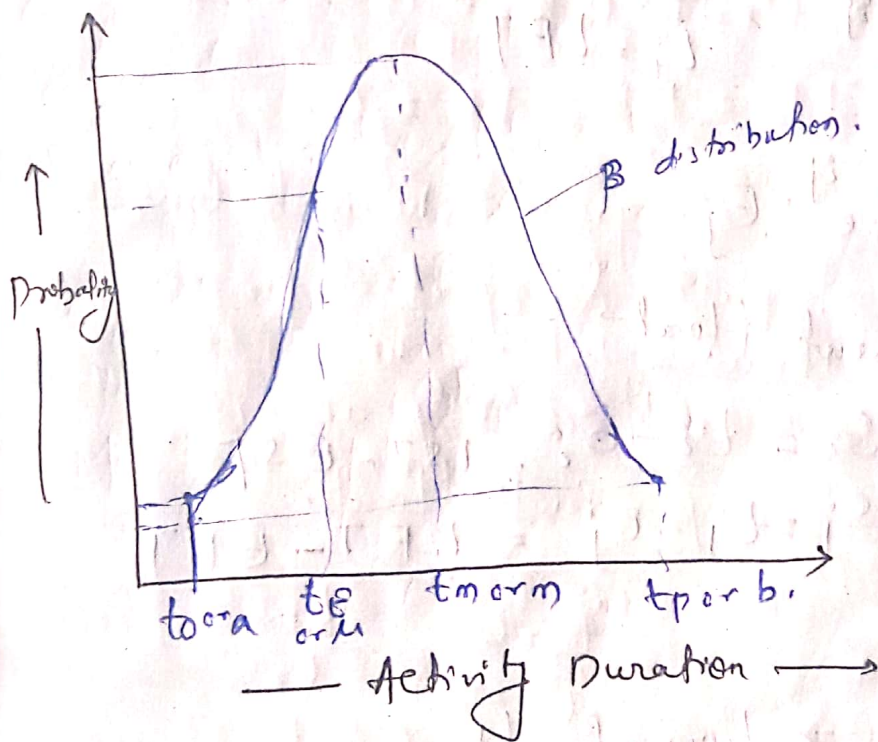 β distribution.
Probality
to or a
tE
or μ
tm or m
tp or b.
Activity Duration